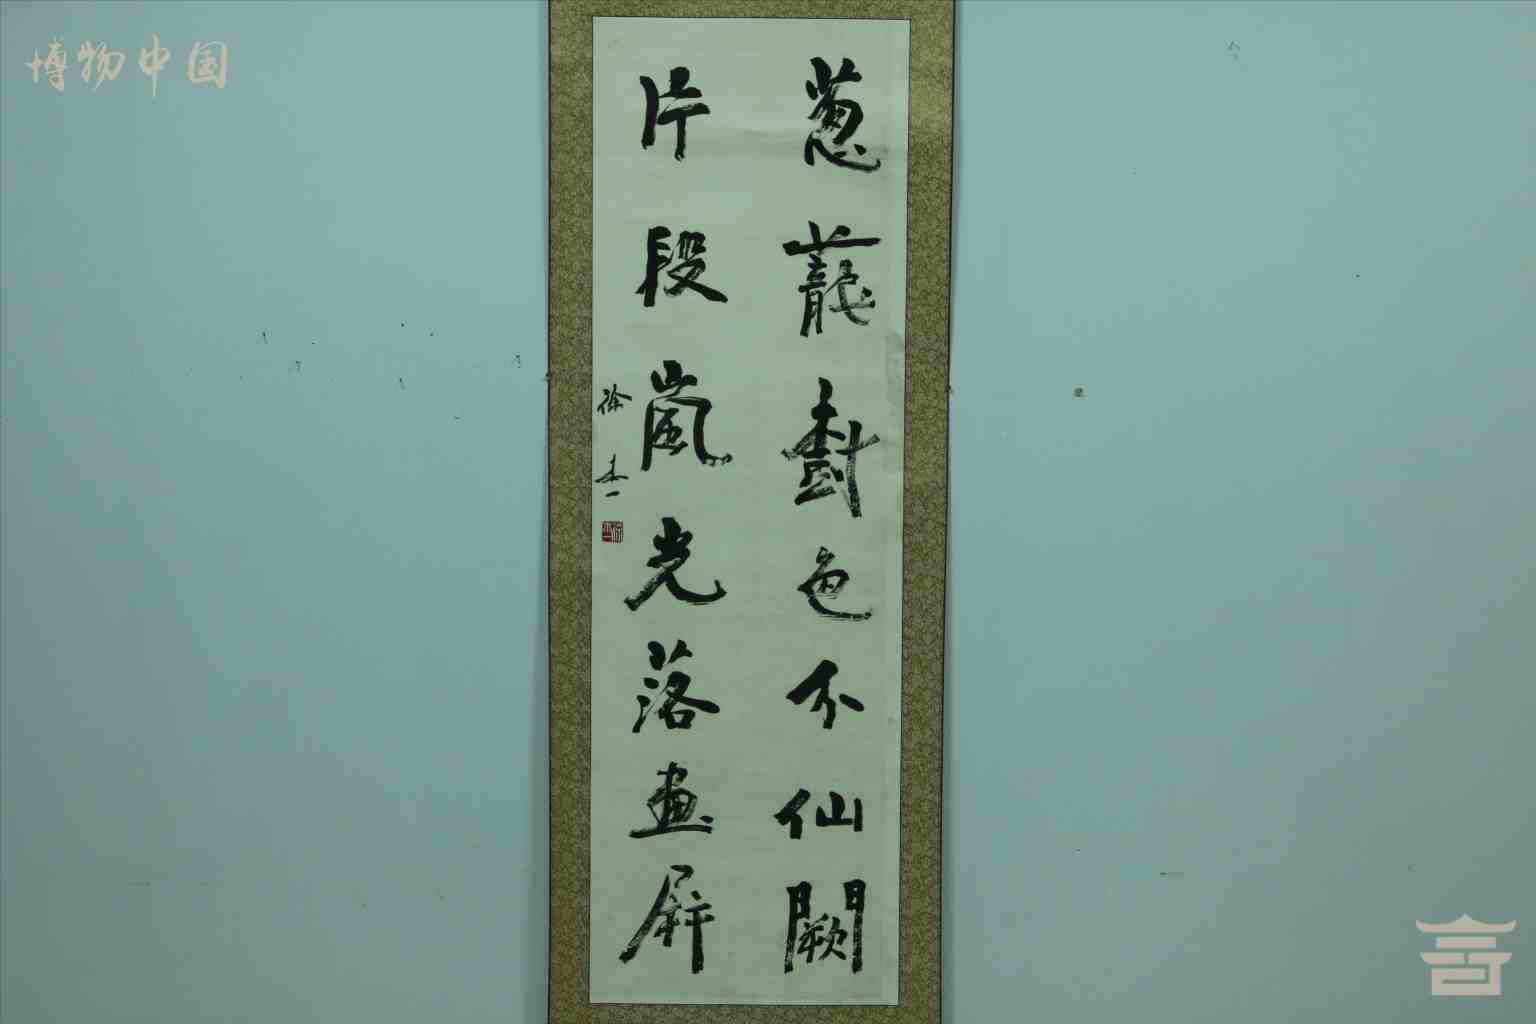 博物中国
葱蘢樹色分仙闕
片段嵐光落畫屏
徐